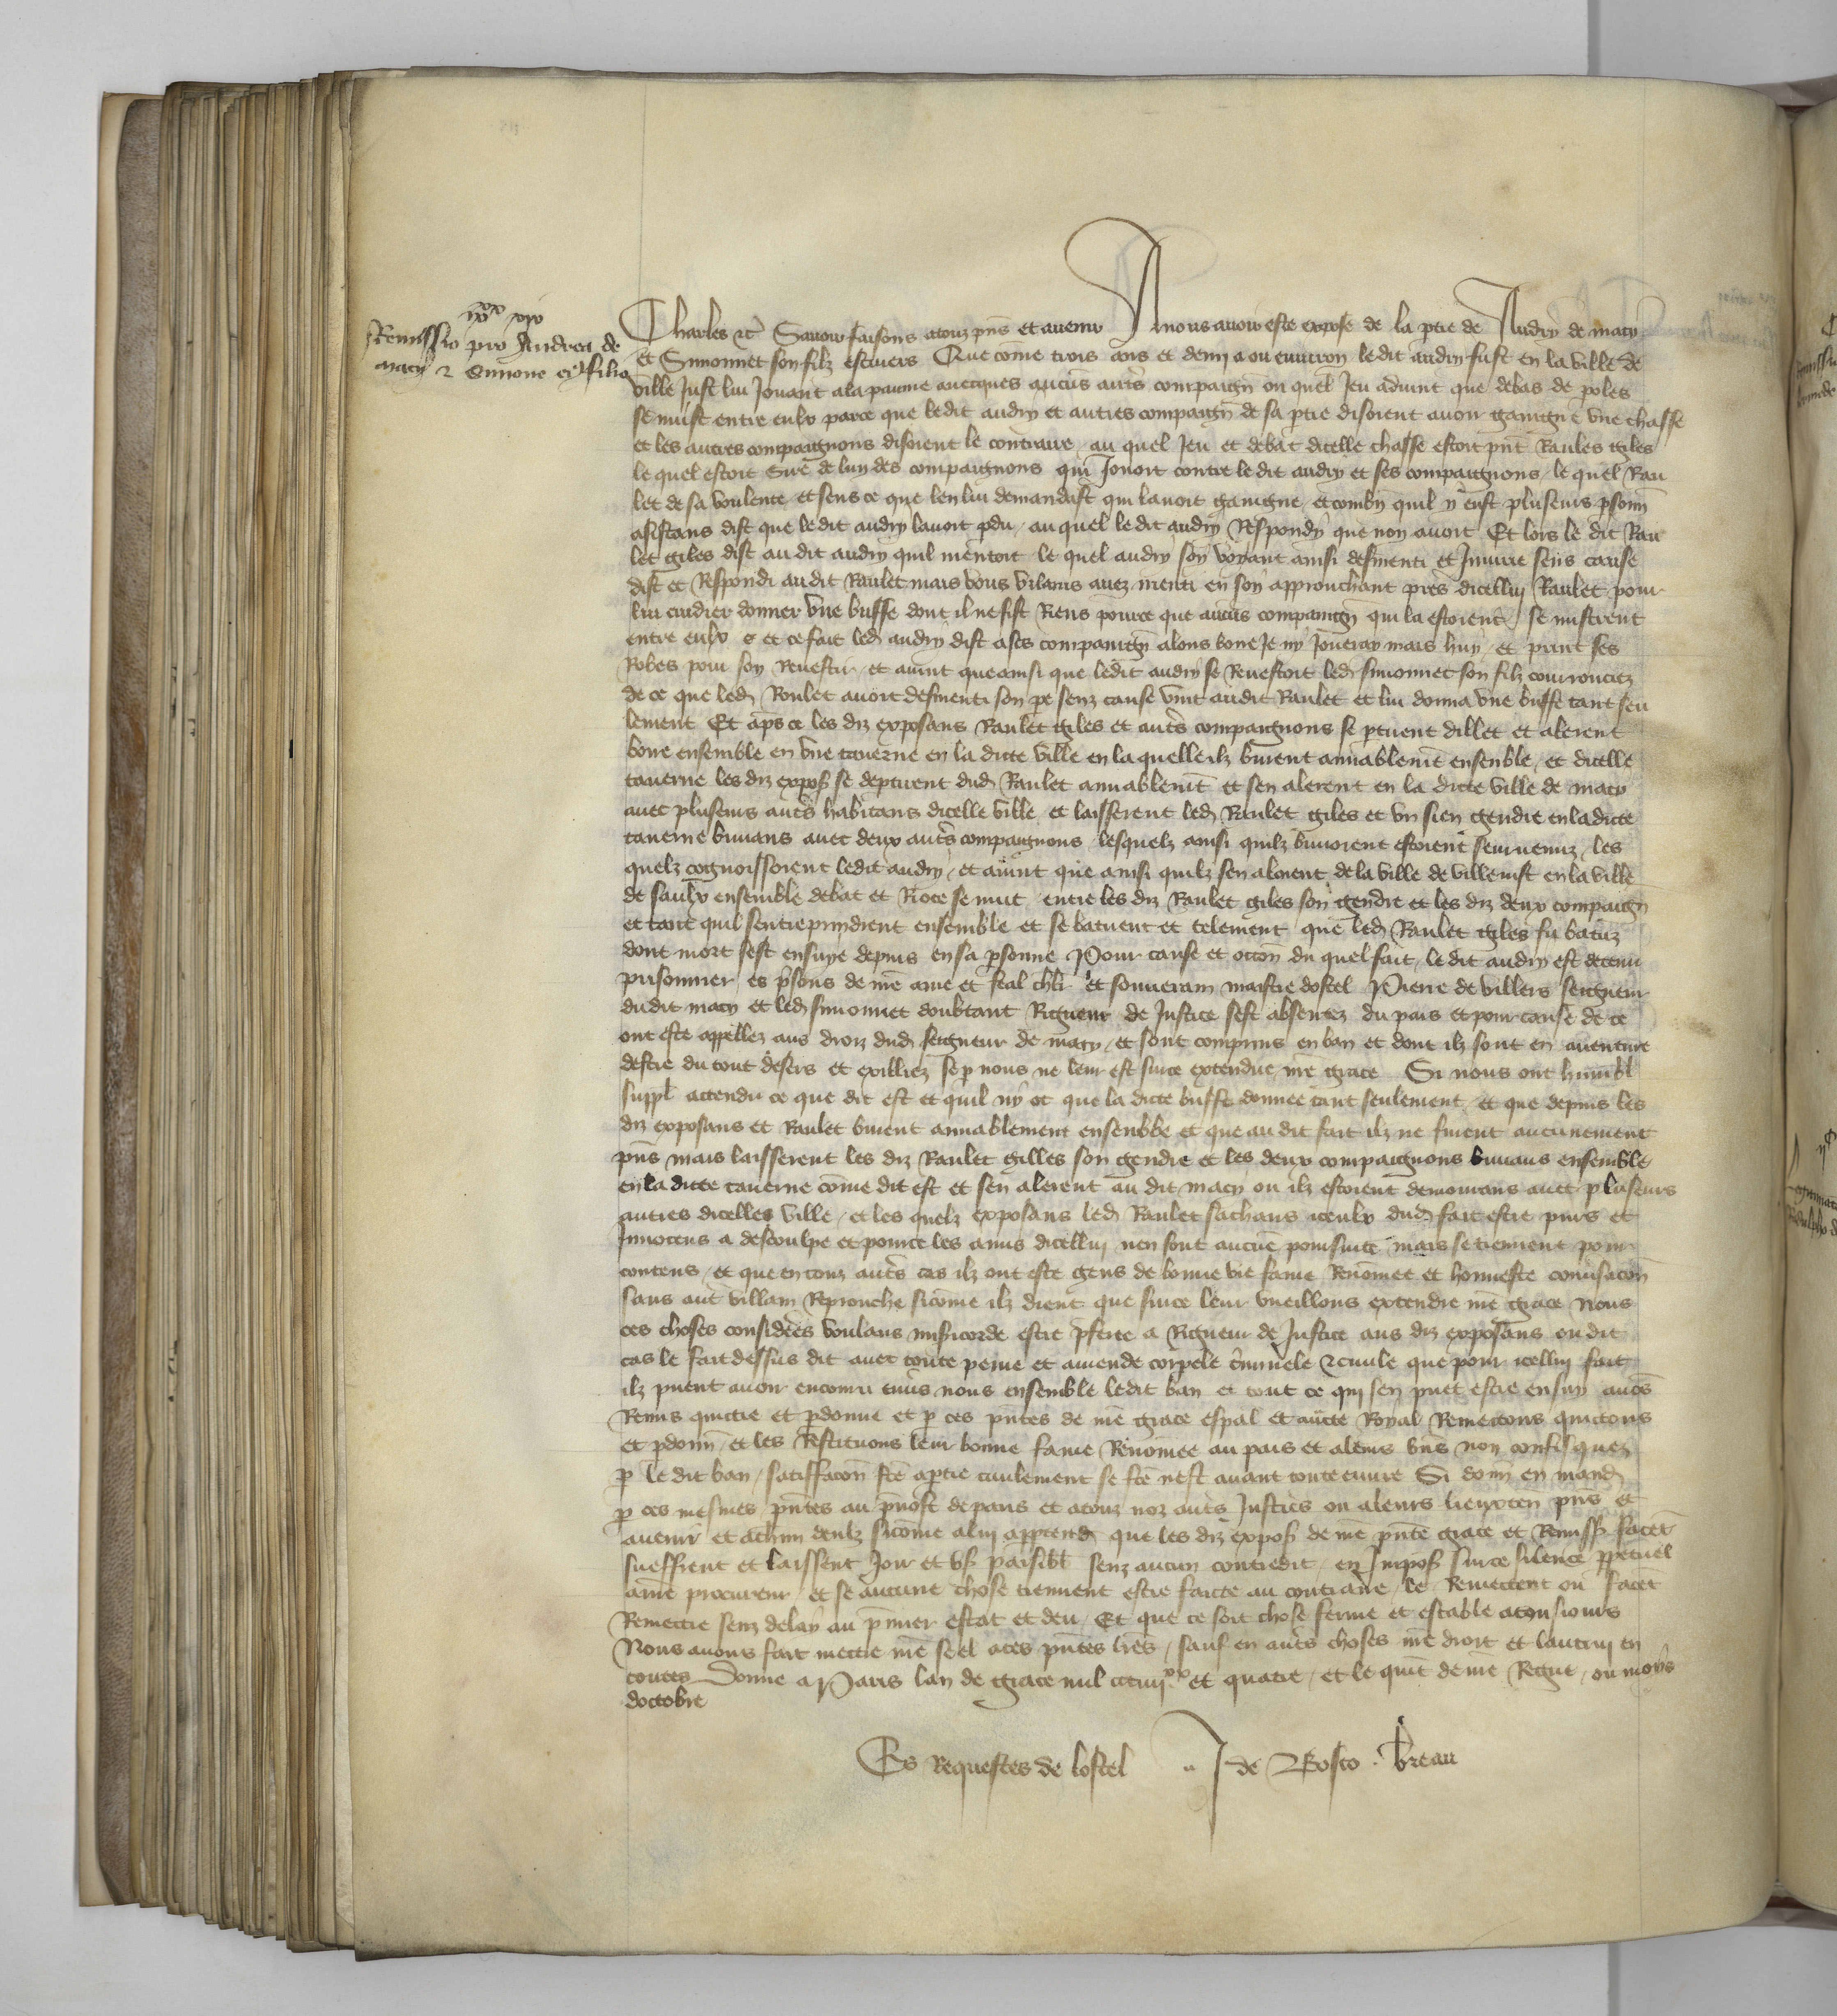 Remissio pro Andrea de
macy ⁊ Simone ei9 filio
Charles ⁊c̃ Savoir faisons atouz pñs et avenir A nous avoir este expose de la ptie de Audry de macy
et Simonnet son filz escuiers Que cõme trois ans et demj a ou environ le dit audry fust en la ville de
ville Just lui Jouant ala paume avecques aucũs autr̃s compaign̄ ou quel Jeu advint que debas de poles
se must entre eulx parce que ledit audry et autres compaign̄ de sa ptie disoient avoir gaingnie une chasse
et les autres compaignons disoient le contraire au quel Jeu et debat dicelle chasse estoit pñt Raulet giles
le quel estoit sire de lun des compaignons qui Jouoit contre ledit audry et ses compaignons le quel Rau
let de sa voulente et sens ce que len lui demandast qui lavoit gaingnie et combñ quil y eust pluseurs psoñ
asistans dist que ledit audry lavoit pdu au quel le dit audry Respondy que non avoit Et lors le dit Rau
let giles dist au dit audry quil mentoit le quel audry soy voyant ainsi desmenti et Jniurie sens cause
dist et Respondi au dit Raulet mais vous vilains avez menti en soy approuchant pres dicellui Raulet pour
lui cuidier donner une buffe dont il ne fist Riens pource que aucũs compaingn̄ qui la estoient se mistrent
entre eulx et ce fait led audry dist a ses compaingn̄ alons boire Je ny Joueray mais huy et print ses
Robes pour soy Revestir et avint que ainsi que ledit audry se Revestoit led simonnet son filz courroucez
de ce que led Roulet avoit desmenti son pe senz cause vint audit Raulet et lui donna une buffe tant seu
lement Et ap̃s ce les diz exposans Raulet giles et autr̃s compaignons se ptirent dillec et alerent
boire ensemble en une taverne en la dicte ville en la quelle ilz burent amiablemt̃ ensemble et dicelle
taverne les diz expoš se deptirent dud Raulet amiablemt̃ et sen alerent en la dicte ville de macy
avec pluseurs autr̃s habitans dicelle ville et laisserent led Raulet giles et un sien gendre en ladicte
taverne buvans avec deux autr̃s compaignons lesquelz ainsi quilz buvoient estoient seurvenuz les
quelz cognoissoient ledit audry et avint que ainsi quilz sen aloient de la ville de villeiust en la ville
de saulx ensemble debat et Riote se mut entre les diz Raulet giles son gendre et les diz deux compaign̄
et tant quil sentreprindrent ensemble et se batirent et telement que led Raulet giles fu batuz
dont mort sest ensuye depuis en sa psonne Pour cause et occoñ du quel fait le dit audry est detenu
prisonnier es pisons de nr̃e ame et feal chlr et souverain maistre dostel Pierre de villers seigneur
dudit macy et led simonnet doubtant Rigueur de Justice sest absentez du pais et pour cause de ce
ont este appellez aus droiz dud seigneur de macy et sont comprins en ban et dont ilz sont en aventure
destre du tout desers et exilliez se p nous ne leur est sur ce extendue nr̃e grace Si nous ont humbl̃
suppl̃ attendu ce que dit est et quil ny ot que la dicte buffe donnee tant seulement et que depuis les
diz exposans et Raulet burent amiablement ensemble et que au dit fait ilz ne furent aucunement
pñs mais laisserent les diz Raulet gilles son gendre et les deux compaignons buvans ensemble
en la dicte taverne cõme dit est et sen alerent au dit macy ou ilz estoient demourans avec pluseurs
autres dicelles ville et les quelz exposans led Raulet sachans iceulx dud fait estre purs et
Innocens a descoulpe et pource les amis dicellui nen font aucũe poursuite mais se tiennent pour
contens et que en touz autr̃s cas ilz ont este gens de bonne vie fame Renõmee et honneste conũsacoñ
sans autr̃ villain Reprouche sicõme ilz dient que sur ce leur vueillons extendre nr̃e grace Nous
ces choses considẽes voulans mis̃icorde estre p̃feree a Rigueur de Justice aus diz exposans ou dit
cas le fait dessus dit avec toute peine et amende corpele c̃minele ⁊ civile que pour icellui fait
ilz puent avoir encouru env̄s nous ensemble ledit ban et tout ce qui sen puet estre ensuy avõs
Remis quictie et pdonne et p ces pñtes de nr̃e grace esp̃al et aučte Royal Remectons quictons
et pdoñ et les Restituons leur bonne fame Renõmee au pais et aleurs biñs non confisquez
p le dit ban satisfacoñ fc̃e aptie civilement se fc̃e nest avant toute euvre Si doñ en mand
p ces mesmes pñtes au p̃vost de paris et atouz noz autr̃s Justiciers ou aleurs lieuxteñ pñs et
avenir et achun deulx sicõme alui apptend que les diz expoš de nr̃e pñte grace et Remiss̃ facet̃
sueffrent et laissent Joir et us̃ paisibl̃ senz aucun contredit en Impoš sur ce silence ppetuel
a nr̃e procureur et se aucune chose tiennent estre faicte au contraire le Remectent ou facet̃
Remectre senz delay au p̃mier estat et deu Et que ce soit chose ferme et estable atousiours
Nous avons fait mectre nr̃e seel aces pñtes lr̃es sauf en autr̃s choses nr̃e droit et lautruy en
toutes Donne a Paris lan de grace mil ccc iiijˣˣ et quatre et le quit̃ de nr̃e Regne ou mois
doctobre
Es Requestes de lostel J de Bosco breau